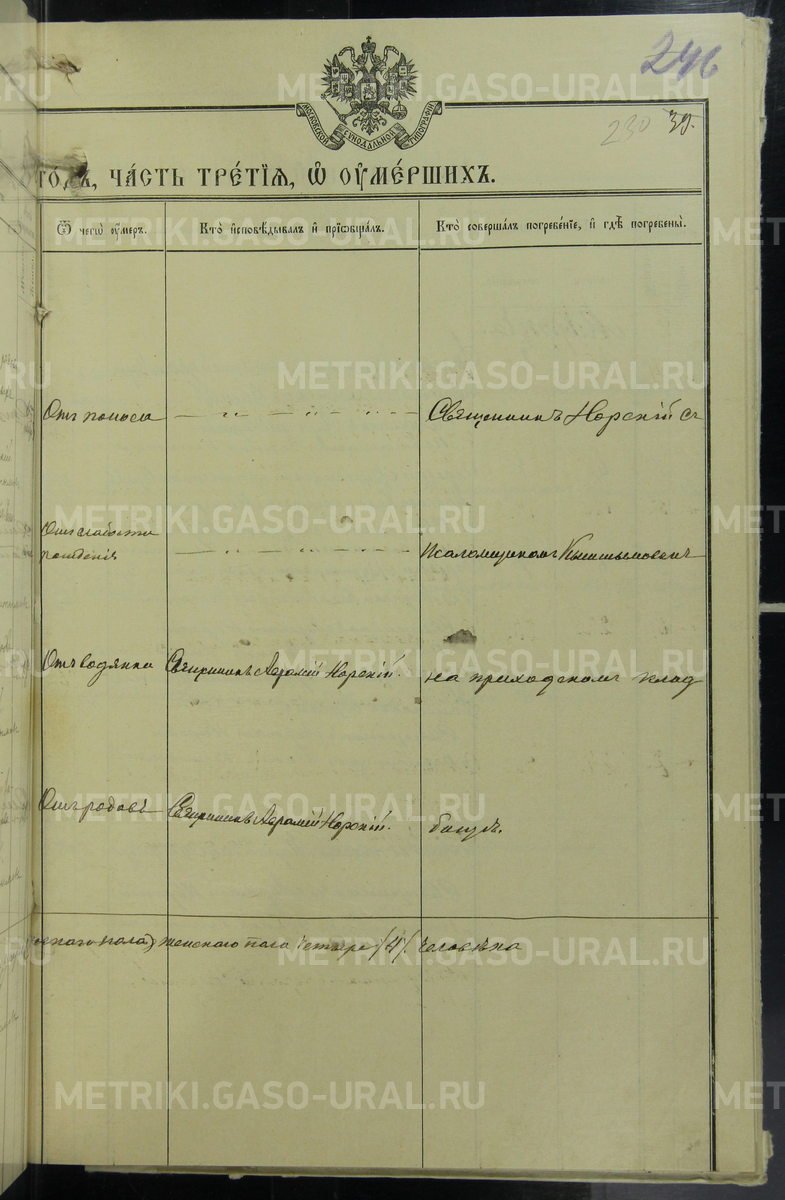 246
230 39.
МОСКОВСКОЙ СѴНОДАЛЬНОЙ ТИПОГРАФІИ
годъ, ча́сть тре́тїѧ, ѡ҆ ᲂу҆ме́ршихъ.
Ѿ чегѡ̀ ᲂу҆́меръ.
Кто̀ и҆сповѣ́дывалъ и҆ прїѡбща́лъ.
Кто̀ соверша́лъ погребе́нїе, и҆ гдѣ̀ погребены̀.
Отъ поноса
Священникъ Норскій съ
Отъ слабости
рожденія
псаломщикомъ
Отъ водянки
Священникъ Авраамій Норскій.
на приходскомъ клад
Отъ родовъ
Священникъ Авраамій Норскій.
бищѣ.
пола) женскаго пола четыре (4) человѣка
METRIKI.GASO-URAL.RU